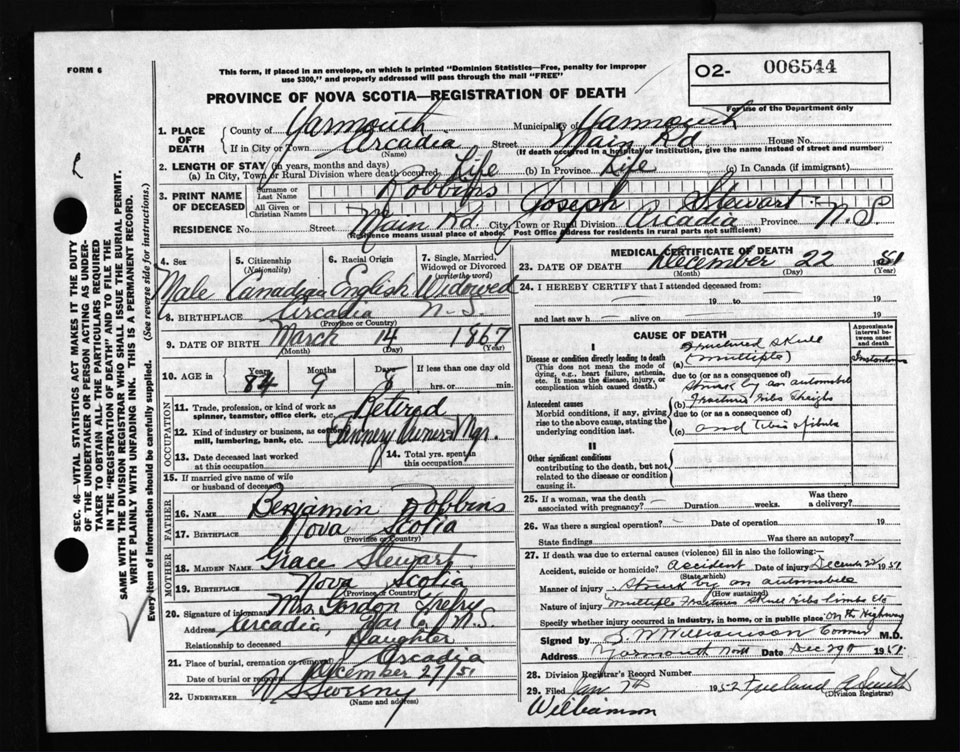 FORM 6
This form, if placed in an envelope, on which is printed "Dominion Statistics—Free, penalty for improper
use $300," and properly addressed will pass through the mail "FREE"
O2- 006544
PROVINCE OF NOVA SCOTIA—REGISTRATION OF DEATH
For use of the Department only
1. PLACE OF DEATH
County of Yarmouth Municipality of Yarmouth
If in City or Town Arcadia Street Main Rd. House No.
(Name) (If death occurred in a hospital or institution, give name instead of street and number)
2. LENGTH OF STAY (in years, months and days)
(a) In City, Town or Rural Division where death occurred Life (b) In Province Life (c) In Canada (if immigrant)
3. PRINT NAME OF DECEASED
Surname or Last Name Robbins
All Given or Christian Names Joseph Stewart
RESIDENCE No. Street Main Rd. City, Town or Rural Division Arcadia Province N.S
(Residence means usual place of abode. Post Office address for residents in rural parts not sufficient)
4. Sex Male
5. Citizenship (Nationality) Canadian
6. Racial Origin English
7. Single, Married, Widowed or Divorced (write the word) Widowed
8. BIRTHPLACE Arcadia N.S.
(Province or Country)
9. DATE OF BIRTH March 14 1867
(Month) (Day) (Year)
10. AGE Years 84 Months 9 Days 8 If less than one day old
hrs. or min.
OCCUPATION
11. Trade, profession, or kind of work as spinner, teamster, office clerk, etc. Retired
12. Kind of industry or business, as cotton mill, lumbering, bank, etc. Owner & Mgr.
13. Date deceased last worked at this occupation
14. Total yrs. spent in this occupation
15. If married give name of wife or husband of deceased
FATHER
16. Name Benjamin Robbins
17. BIRTHPLACE Nova Scotia
(Province or Country)
MOTHER
18. MAIDEN NAME Grace Stewart
19. BIRTHPLACE Nova Scotia
(Province or Country)
20. Signature of informant Mrs. Gordon Trefry
Address Arcadia, Yar. Co. N.S.
Relationship to deceased Daughter
21. Place of burial, cremation or removal Arcadia
Date of burial or removal December 27/51
22. UNDERTAKER Sweeny
(Name and address)
MEDICAL CERTIFICATE OF DEATH
23. DATE OF DEATH December 22 1951
(Month) (Day) (Year)
24. I HEREBY CERTIFY that I attended deceased from
19 to 19
and last saw h alive on 19
CAUSE OF DEATH
Approximate interval between onset and death
I
Disease or condition directly leading to death
(This does not mean the mode of dying, e.g., heart failure, asthenia, etc. It means the disease, injury, or complication which caused death.)
Fractured Skull
(a) (multiple)
due to (or as a consequence of)
Struck by an automobile
Antecedent causes
Morbid conditions, if any, giving rise to the above cause, stating the underlying condition last.
(b) Fracture ribs thighs
due to (or as a consequence of)
(c) and tibia fibula
II
Other significant conditions
contributing to the death, but not related to the disease or condition causing it.
25. If a woman, was the death associated with pregnancy? Duration weeks. Was there a delivery?
26. Was there a surgical operation? Date of operation 19
State findings Was there an autopsy?
27. If death was due to external causes (violence) fill in also the following:—
Accident, suicide or homicide? Accident Date of injury December 22 1951
(State which)
Manner of injury Struck by an automobile
(How sustained)
Nature of injury multiple fractures skull ribs limbs etc
Specify whether injury occurred in industry, in home, or in public place on the Highway
Signed by Williamson Coroner M.D.
Address Yarmouth North Date Dec 29th 1951
28. Division Registrar's Record Number
29. Filed Jan 7th 1952
(Division Registrar)
Williamson
SEC. 46—VITAL STATISTICS ACT MAKES IT THE DUTY
OF THE UNDERTAKER OR PERSON ACTING AS UNDER-
TAKER TO OBTAIN ALL THE PARTICULARS REQUIRED
IN THE "REGISTRATION OF DEATH" AND TO FILE THE
SAME WITH THE DIVISION REGISTRAR WHO SHALL ISSUE THE BURIAL PERMIT.
WRITE PLAINLY WITH UNFADING INK. THIS IS A PERMANENT RECORD.
Every item of information should be carefully supplied. (See reverse side for instructions.)